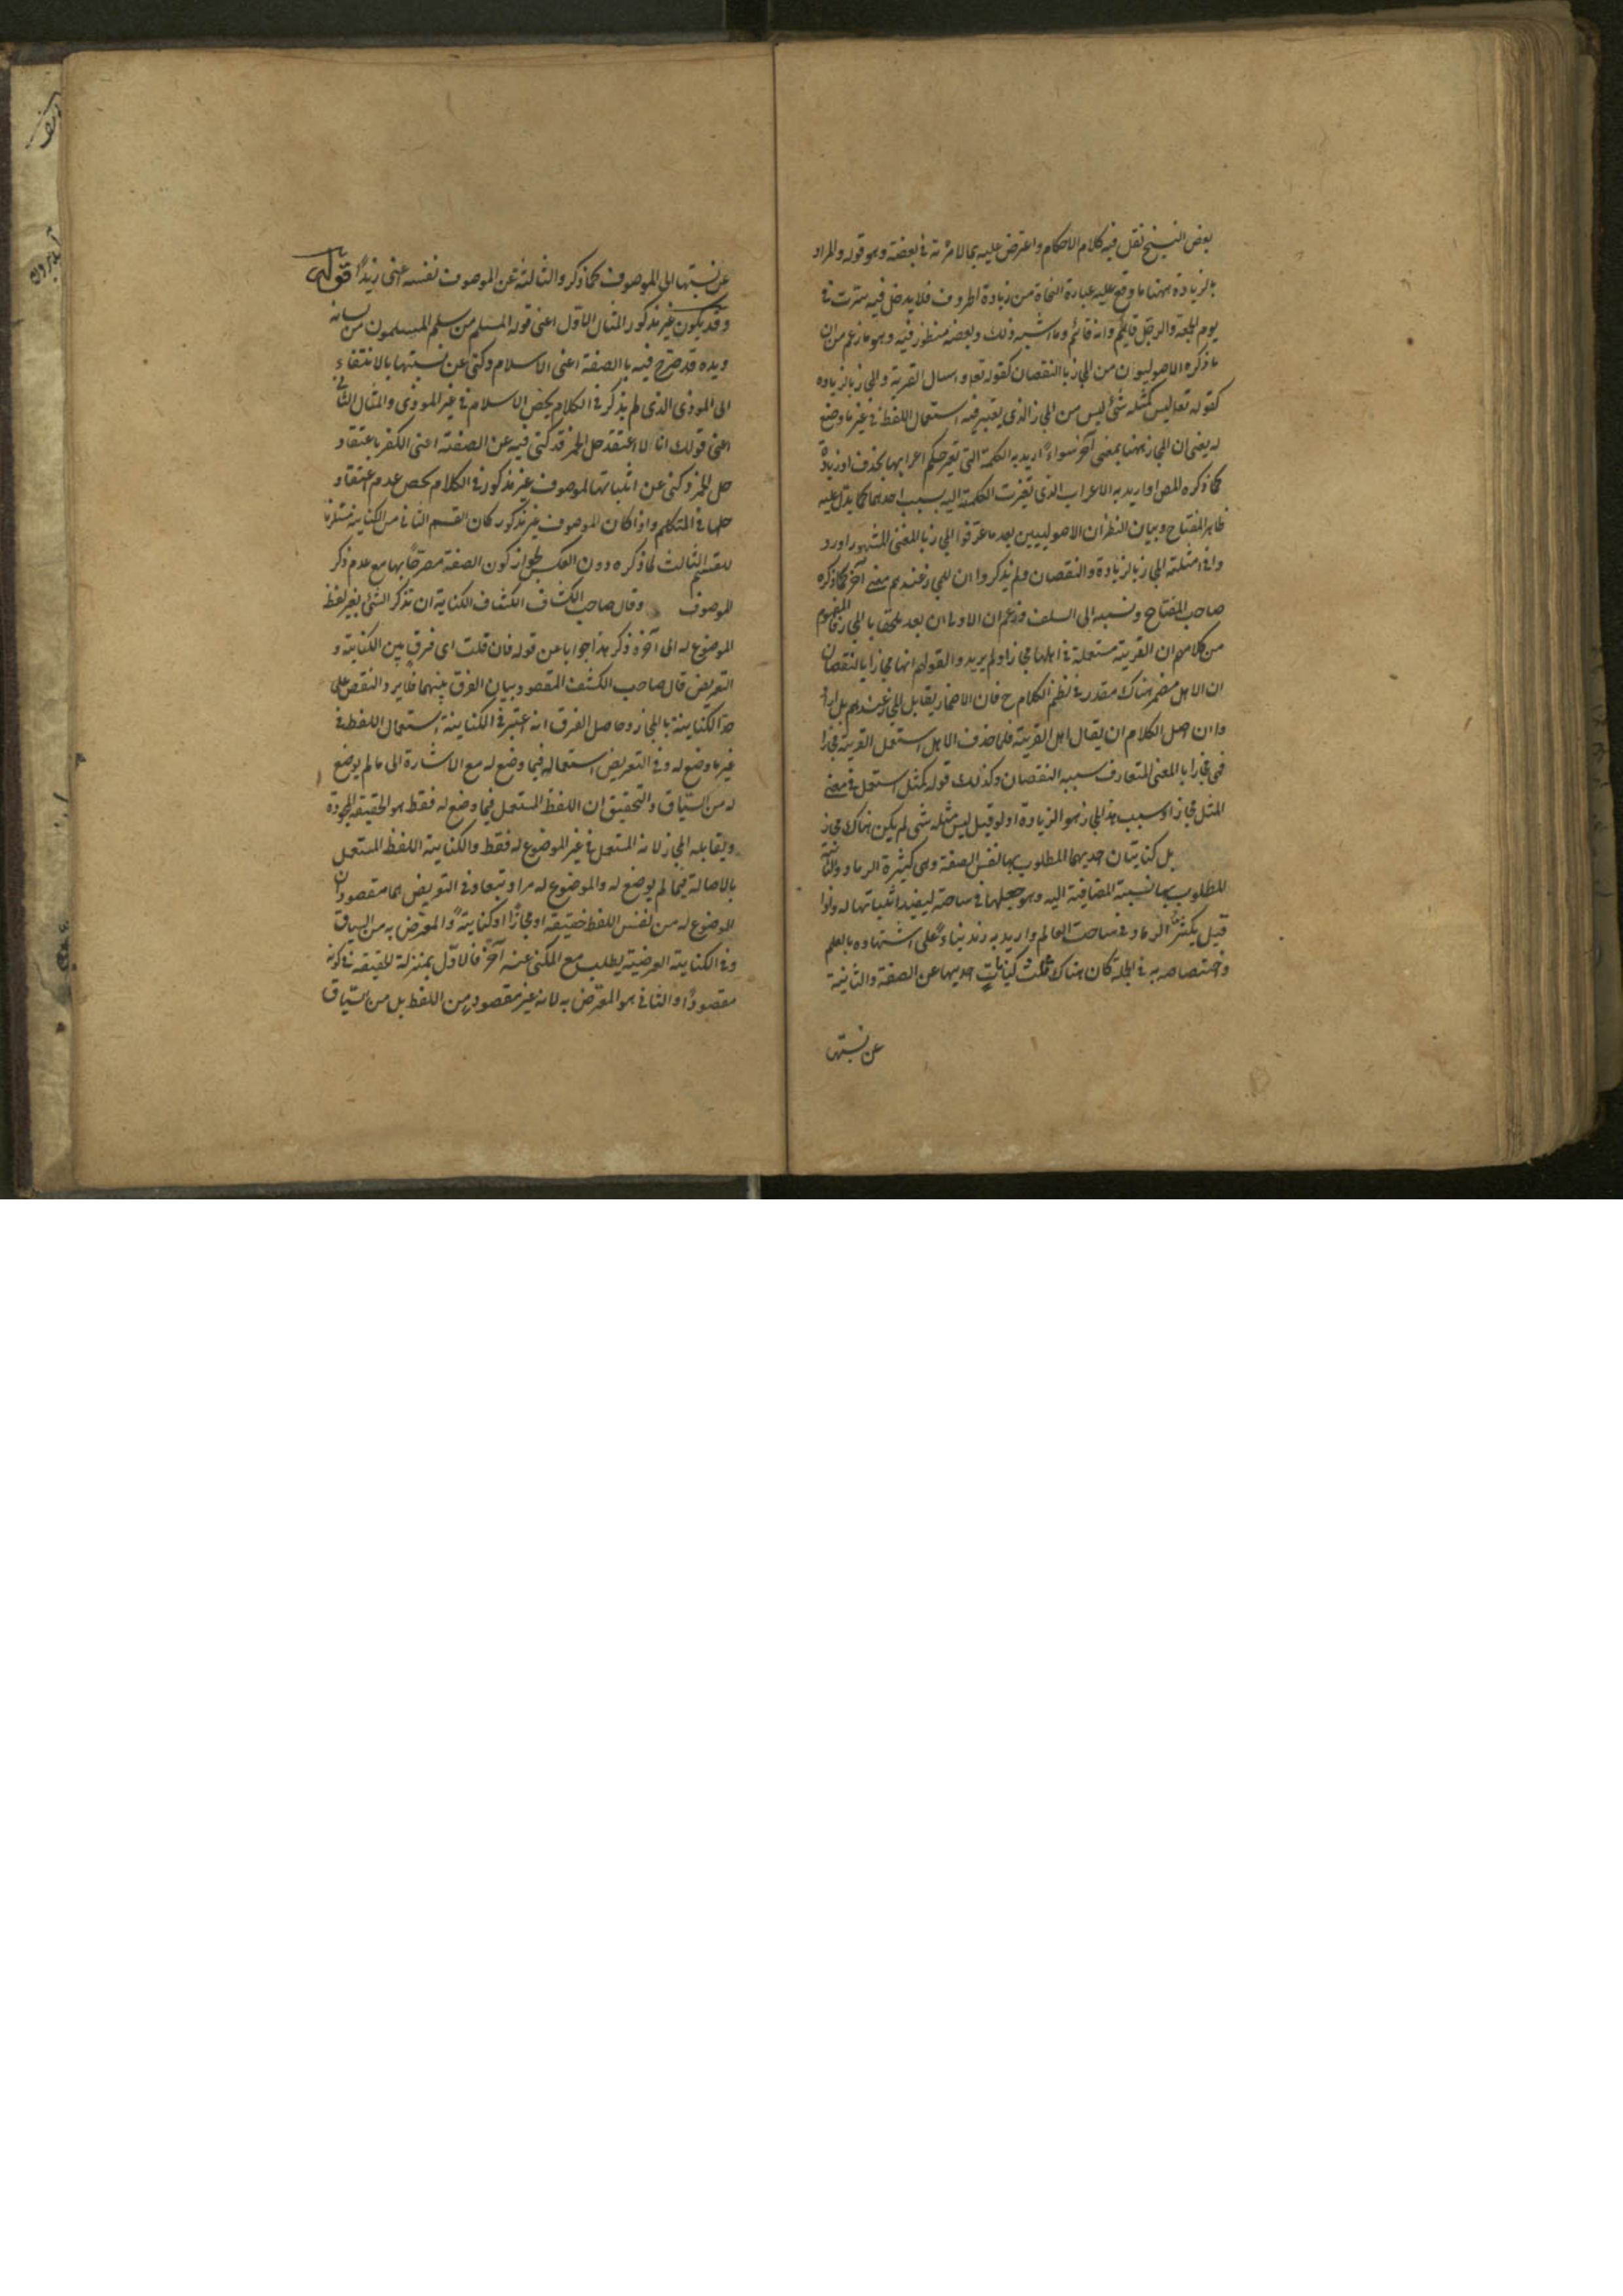 بعض النسخ نقل فيه كلام الاحكام واعترض عليه بما لا مرية في بعضه وهو قوله والمراد
بالزيادة ههنا ما وقع عليه عبارة النحاة من زيادة الحروف فلا يدخل فيه سرت في
يوم الجمعة والرجل قائم وانه قائم وما اشبه ذلك وبعضه منظور فيه وهو ما زعم من ان
ما ذكره الاصوليون من المجاز بالنقصان كقوله تعا واسال القرية والمجاز بالزيادة
كقوله تعا ليس كمثله شئ ليس من المجاز الذي يعتبر فيه استعمال اللفظ في غير ما وضع
له يعني ان المجاز ههنا بمعنى آخر سواء اريد به الكلمة التي تغير حكم اعرابها بحذف او زيادة
كما ذكره المص او اريد به الاعراب الذي تغيرت الكلمة اليه بسبب احدهما كما يدل عليه
ظاهر المفتاح وبيان النظر ان الاصوليين بعد ما عرفوا المجاز بالمعنى المشهور اورد
وا في امثلته المجاز بالزيادة والنقصان ولم يذكروا ان للمجاز عندهم معنى آخر كما ذكره
صاحب المفتاح ونسبه الى السلف وزعم ان الاولى ان يعد ملحقا بالمجاز فالمفهوم
من كلامهم ان القرية مستعملة في اهلها مجازا ولم يريدوا بقولهم انها مجاز بالنقصان
ان الاهل مضمر هناك مقدر في نظم الكلام ح فان الاضمار يقابل المجاز عندهم بل ارا
دوا ان اصل الكلام ان يقال اهل القرية فلما حذف الاهل استعمل القرية مجازا
فهي مجاز بالمعنى المتعارف سببه النقصان وكذلك قوله كمثله استعمل في معنى
المثل مجازا وسبب هذا المجاز هو الزيادة اذ لو قيل ليس مثله شئ لم يكن هناك مجاز
بل كنايتان احديهما المطلوب بها نفس الصفة وهي كثرة الرماد والثانية
المطلوب بها نسبة المضافية اليه وهو جعلها في ساحته ليفيد اثباتها له واذا
قيل يكثر الرماد في ساحت العالم واريد به زيد بناء على اشتهاره بالعلم
واختصاصه به في الجملة كان هناك ثلث كنايات احديها عن الصفة والثانية
عن نسبتها
عن نسبتها الى الموصوف كما ذكر والثالثة عن الموصوف نفسه اعني زيدا قوله
وقد يكون غير مذكور المثال الاول اعني قوله المسلم من سلم المسلمون من لسانه
ويده قد صرح فيه بالصفة اعني الاسلام وكنى عن نسبتها بالانتفاء
الى المؤذى الذي لم يذكر في الكلام بحصر الاسلام في غير المؤذى والمثال الثاني
اعني قولك انا لا اعتقد حل الخمر قد كنى فيه عن الصفة اعني الكفر باعتقاد
حل الخمر وكنى عن اثباتها لموصوف غير مذكور في الكلام بحصر عدم اعتقاد
حلها في المتكلم واذا كان الموصوف غير مذكور كان القسم الثاني من الكناية مستلزما
للقسم الثالث لما ذكره دون العكس لجواز كون الصفة مصرحا بها مع عدم ذكر
الموصوف وقال صاحب الكشاف الكناية ان تذكر الشئ بغير لفظه
الموضوع له الى آخره ذكر هذا جوابا عن قوله فان قلت اى فرق بين الكناية و
التعريض قال صاحب الكشف المقصود بيان الفرق بينهما فلا يرد النقض على
حد الكناية بالمجاز وحاصل الفرق انه اعتبر في الكناية استعمال اللفظ في
غير ما وضع له وفي التعريض استعماله فيما وضع له مع الاشارة الى ما لم يوضع
له من السياق والتحقيق ان اللفظ المستعمل فيما وضع له فقط هو الحقيقة المجردة
ويقابله المجاز لانه المستعمل في غير الموضوع له فقط والكناية اللفظ المستعمل
بالاصالة فيما لم يوضع له والموضوع له مراد تبعا وفي التعريض هما مقصودان
الموضوع له من نفس اللفظ حقيقة او مجازا او كناية والمعرض به من السياق
وفي الكناية العرضية يطلب مع المكنى عنه آخر فالاول بمنزلة الحقيقة في كونه
مقصودا والثاني هو المعرض به لانه غير مقصود من اللفظ بل من السياق